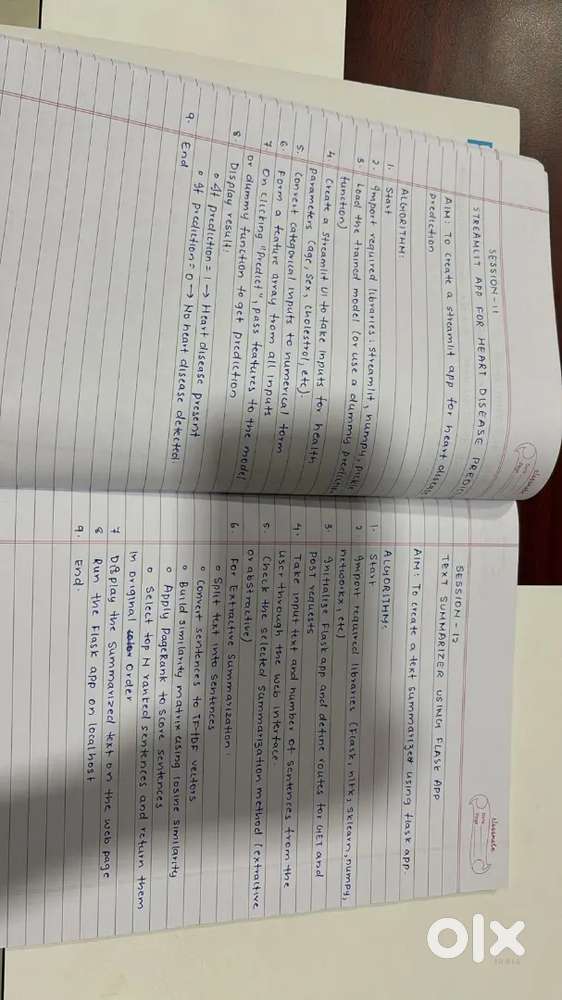 SESSION-11
STREAMLIT APP FOR HEART DISEASE PREDIC
AIM: To create a streamlit app for heart diseas
prediction
ALGORITHM:
1. Start
2. Import required libraries: streamlit, numpy, pickle
3. Load the trained model (or use a dummy predictio
function)
4 Create a streamlit UI to take inputs for health
parameters (age, sex, cholestrol, etc).
5. Convert categorical inputs to numerical form
6. Form a feature array from all inputs
7 On clicking "Predict", pass features to the model
or dummy function to get prediction
8 Display result:
o If prediction = 1 → Heart disease present
o If prediction = 0 → No heart disease detected
9. End
classmate
Date
Page
SESSION-12
TEXT SUMMARIZER USING FLASK APP
AIM: To create a text summarizer using flask app.
ALGORITHM:
1. Start
2 Import required libraries (Flask, nltk, sklearn, numpy,
networkx, etc)
3. Initialize Flask app and define routes for GET and
POST requests
4. Take input text and number of sentences from the
user through the web interface.
5 Check the selected summarization method (extractive
or abstractive)
6. For Extractive Summarization:
o Split text into sentences
o Convert sentences to TF-IDF vectors
o Build similarity matrix using cosine similarity
o Apply PageRank to score sentences
o Select top N ranked sentences and return them
in original order
7 Display the summarized text on the web page
8 Run the Flask app on localhost
9. End.
classmate
Date
Page
olx
INDIA